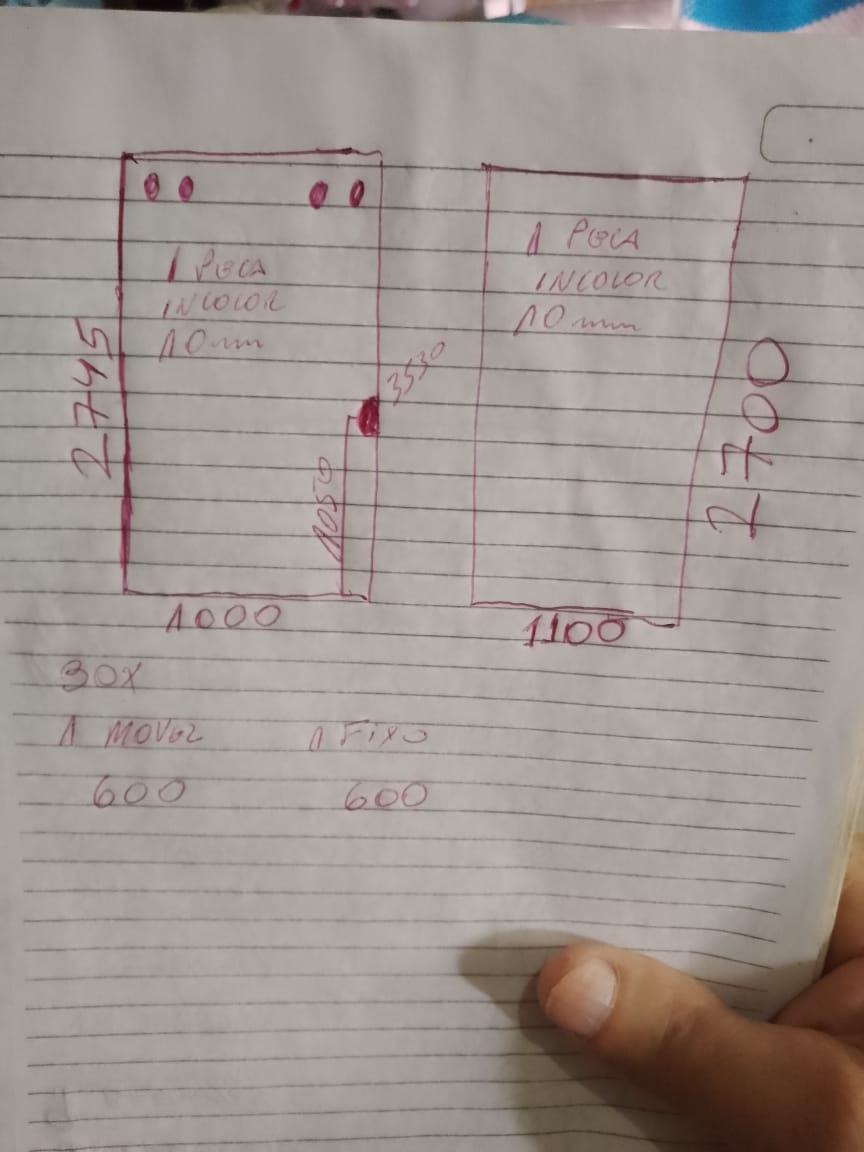 1 PECA
INCOLOR
10mm
2745
3530
1050
1000
1 PECA
INCOLOR
10mm
2700
1100
30X
1 MOVEL 1 FIXO
600 600